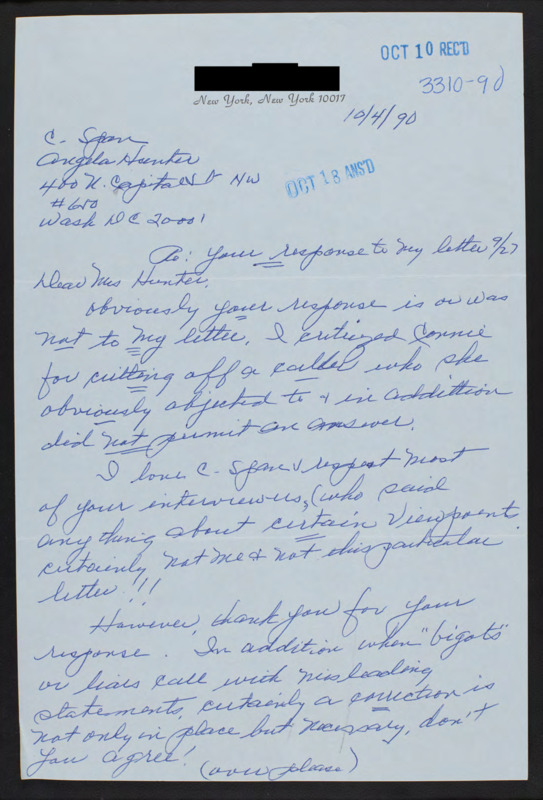 OCT 10 REC'D
3310-90
New York, New York 10017
10/4/90
C. Span
Angela Hunter
400 N. Capital St NW
#650
Wash DC 20001
OCT 18 ANS'D
Re: Your response to my letter 9/27
Dear Mrs Hunter,
Obviously your response is or was
not to my letter. I critized Connie
for cutting off a caller who she
obviously objected to & in addittion
did not permit an answer.
I love C-Span & respect most
of your interviewers, (who said
anything about certain viewpoint
certainly not me & not this particular
letter!!!
However, thank you for your
response. In addition when "bigots"
or liars call with misleading
statements, certainly a correction is
not only in place but necessary, don't
you agree!
(over please)